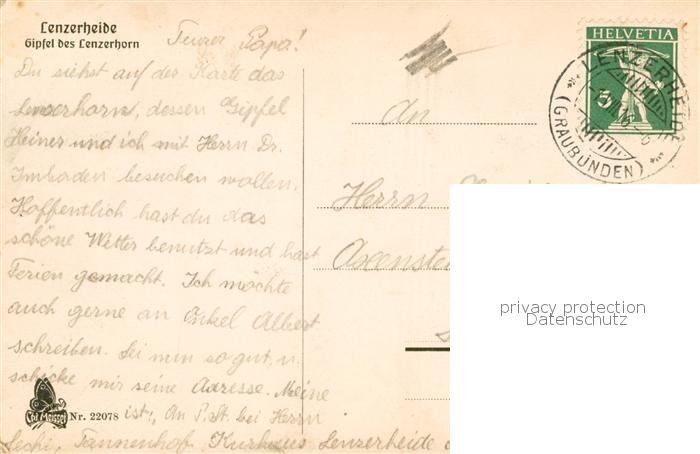 Lenzerheide
Gipfel des Lenzerhorn
Teurer Papa!
Du siehst auf der Karte das
Lenzerhorn, dessen Gipfel
Heiner und ich mit Herrn Dr.
Imboden besuchen wollen.
Hoffentlich hast du das
schöne Wetter benutzt und hast
Ferien gemacht. Ich möchte
auch gerne an Onkel Albert
schreiben. Sei nun so gut, u.
schicke mir seine Adresse. Meine
ist: An P. St. bei Herrn
Lechi, Tannenhof, Kurhaus Lenzerheide
Nr. 22078
HELVETIA
5
LENZERHEIDE
(GRAUBÜNDEN)
An
Herrn
privacy protection
Datenschutz